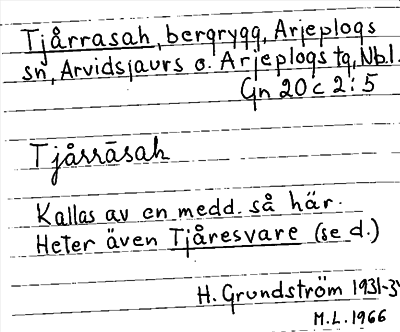 Tjårrasah, bergrygg, Arjeplogs
sn, Arvidsjaurs o. Arjeplogs tg, Nb.l.
Gn 20 c 2:5
Tjårrāsah
Kallas av en medd. så här.
Heter även Tjåresvare (se d.)
H. Grundström 1931-3
M.L. 1966